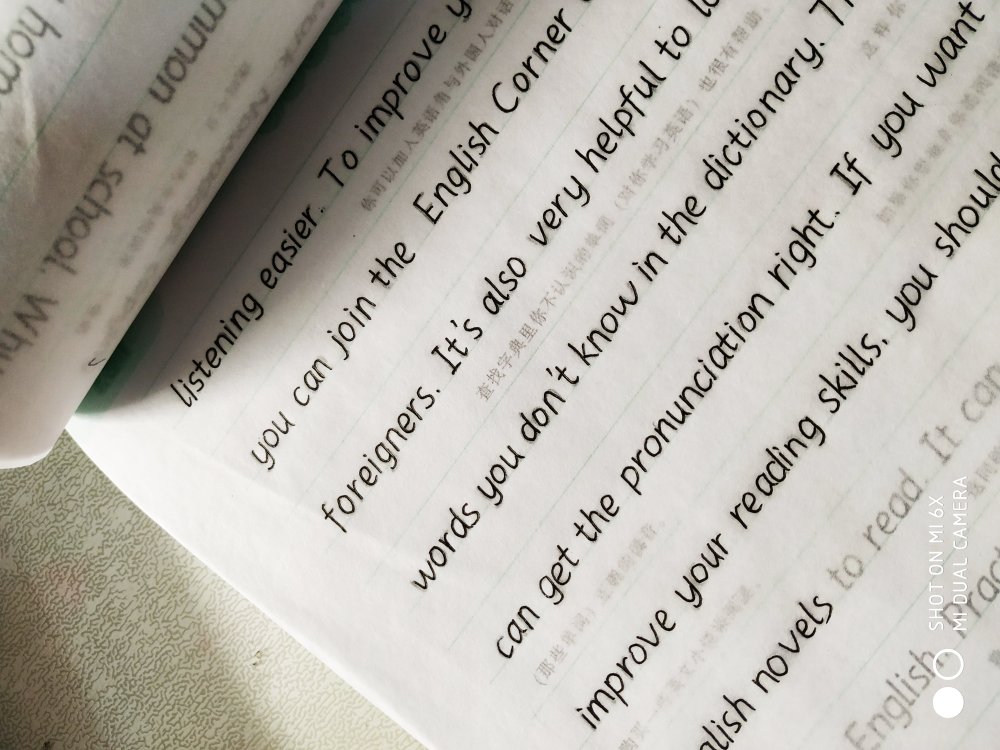 hom
mmon at school. Why
listening easier. To improve y
你可以加入英语角与外国人对话
you can join the English Corner
foreigners. It's also very helpful to lo
查找字典里你不认识的单词（对你学习英语）也很有帮助.
words you don't know in the dictionary. Th
这样你
can get the pronunciation right. If you want
（那些单词）正确的读音。
improve your reading skills, you should
glish novels to read. It can
English. Pract
SHOT ON MI 6X
MI DUAL CAMERA